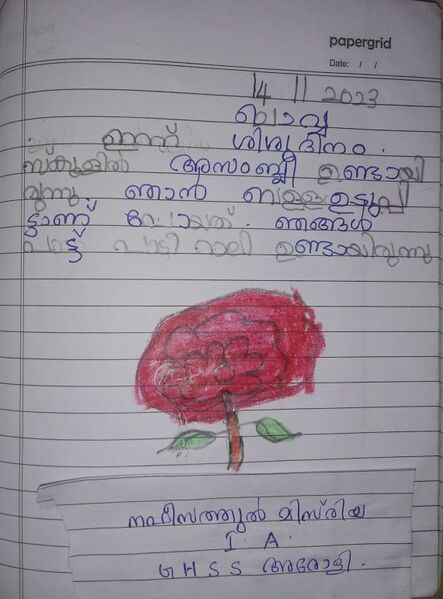 papergrid
Date: / /
14 11 2023
ചൊവ്വ
ഇന്ന് ശിശുദിനം.
സ്കൂളിൽ അസംബ്ലി ഉണ്ടായി
രുന്നു ഞാൻ ബള്ളഉടുപ്പി
ട്ടാണ് പോയത്. ഞങ്ങൾ
പാട്ട് പാടി റാലി ഉണ്ടായിരുന്നു
നഫീസത്തുൽ മിസ്രിയ
I. A.
G H S S അരോളി.